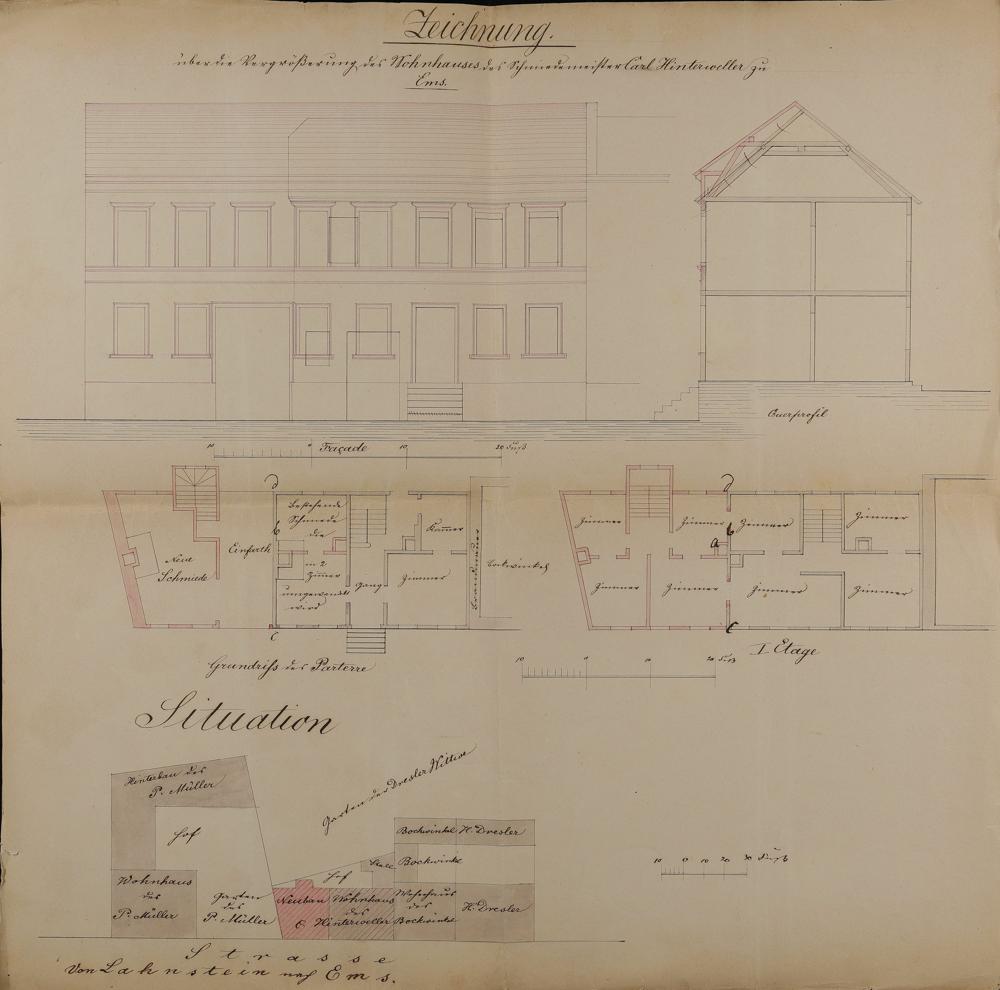 Zeichnung.
über die Vergrößerung des Wohnhauses des Schmiedemeister Carl Hinterweller zu
Ems.
Querprofil
10 0 Façade 10 20 Fuß
Bestehende
Schmiede
die
in 2
Zimmer
umgewandelt
wird
Neue
Schmiede
Einfarth
Gang
Kammer
Zimmer
Brandmauer
Bockwinkel
D
b
C
Grundriss des Parterre
Zimmer Zimmer Zimmer Zimmer
Zimmer Zimmer Zimmer Zimmer
D
a b
C
I Etage
10 0 10 20 Fuß
Situation
Hinterbau des
P. Müller
Hof
Wohnhaus
des
P. Müller
Garten
des
P. Müller
Garten der Dresler Wittwe
Hof
Stall
Bockwinkel H. Dresler
Bockwinkel
Neubau
Wohnhaus
des
C. Hinterweller
Wohnhaus
des
Bockwinkel
H. Dresler
10 0 10 20 30 Fuß
Strasse
Von Lahnstein nach Ems.